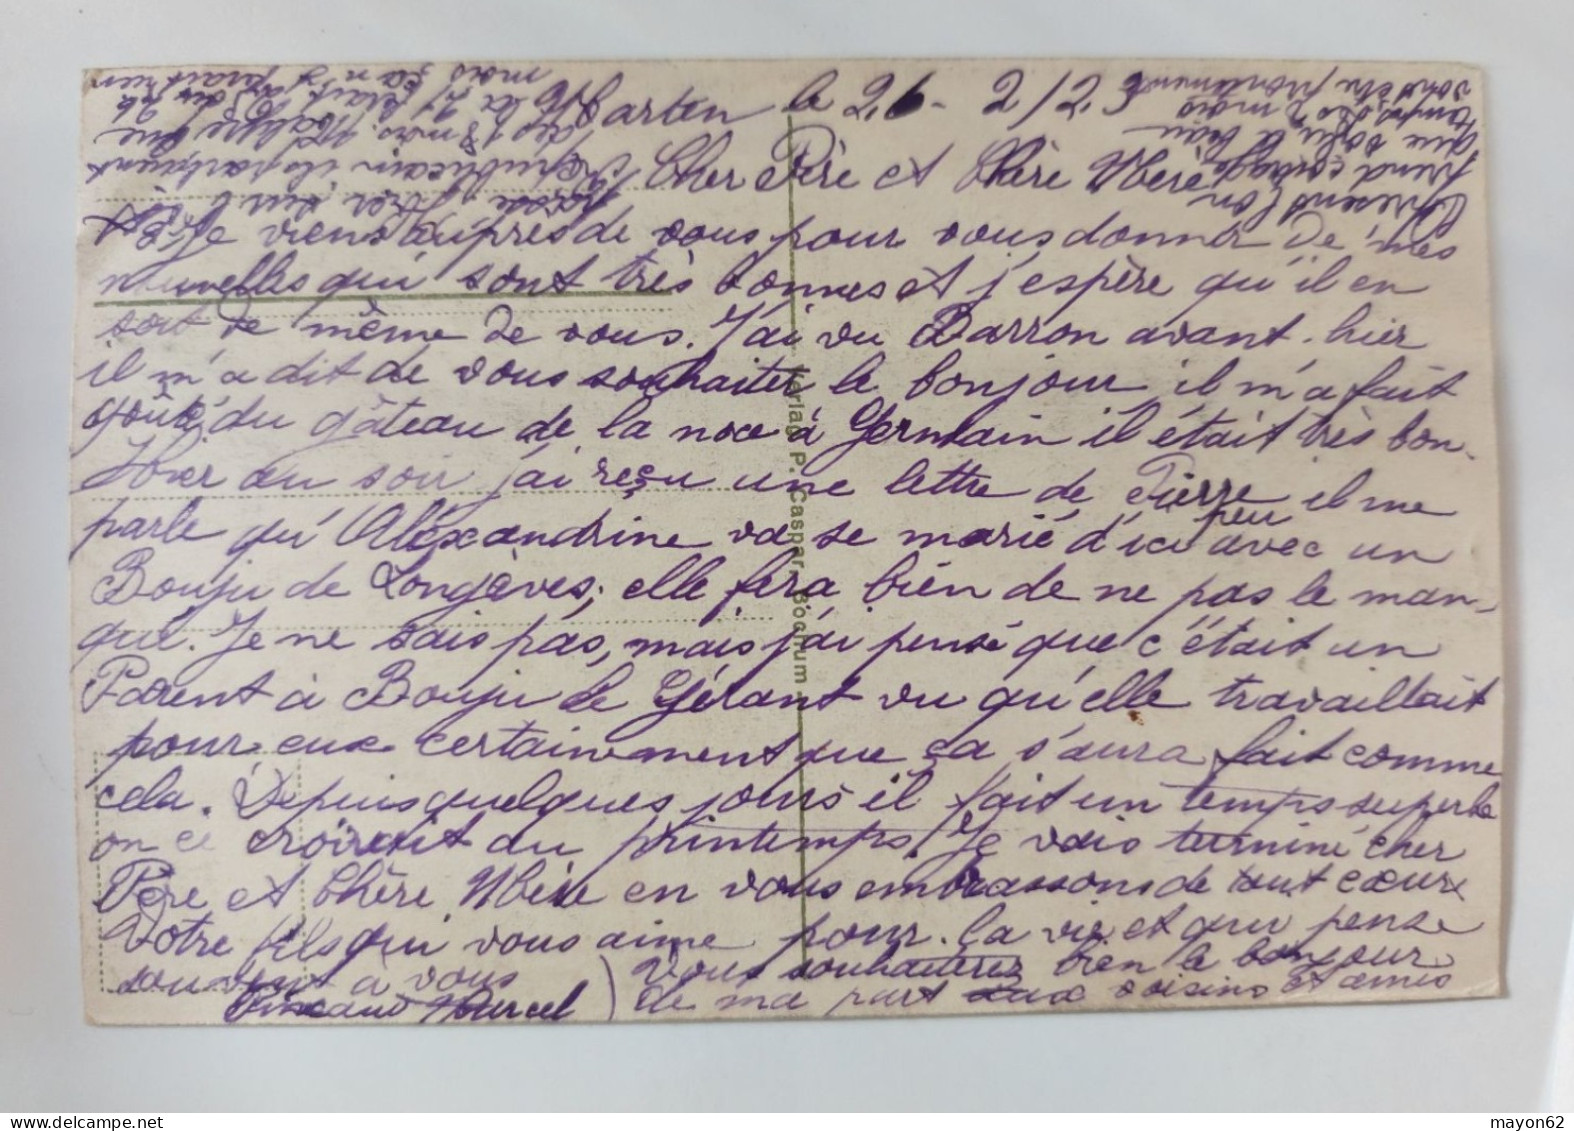 Marten le 26-2/25
Cher Père et Chère Mère
Je viens auprès de vous pour vous donner de mes
nouvelles qui sont très bonnes et j'espère qu'il en
soit de même de vous. J'ai vu Barron avant-hier
il m'a dit de vous souhaiter le bonjour il m'a fait
goûté du gâteau de la noce à Germain il était très bon.
Hier au soir j'ai reçu une lettre de Pierre il me
parle qu'Alexandrine va se marié d'ici peu avec un
Bouju de Longèves; elle fera bien de ne pas le man-
qué. Je ne sais pas, mais j'ai pensé que c'était un
Parent à Bouju le Gérant vu qu'elle travaillait
pour eux certainement que ça s'aura fait comme
cela. Depuis quelques jours il fait un temps superbe
on ce croirait du printemps. Je vais terminé cher
Père et Chère Mère en vous embrassons de tout cœur
Votre fils qui vous aime pour la vie et qui pense
souvent à vous
Marcel
Vous souhaiterez bien le bonjour
de ma part aux voisins et amis
Verlag P. Caspar, Bochum
mayon62